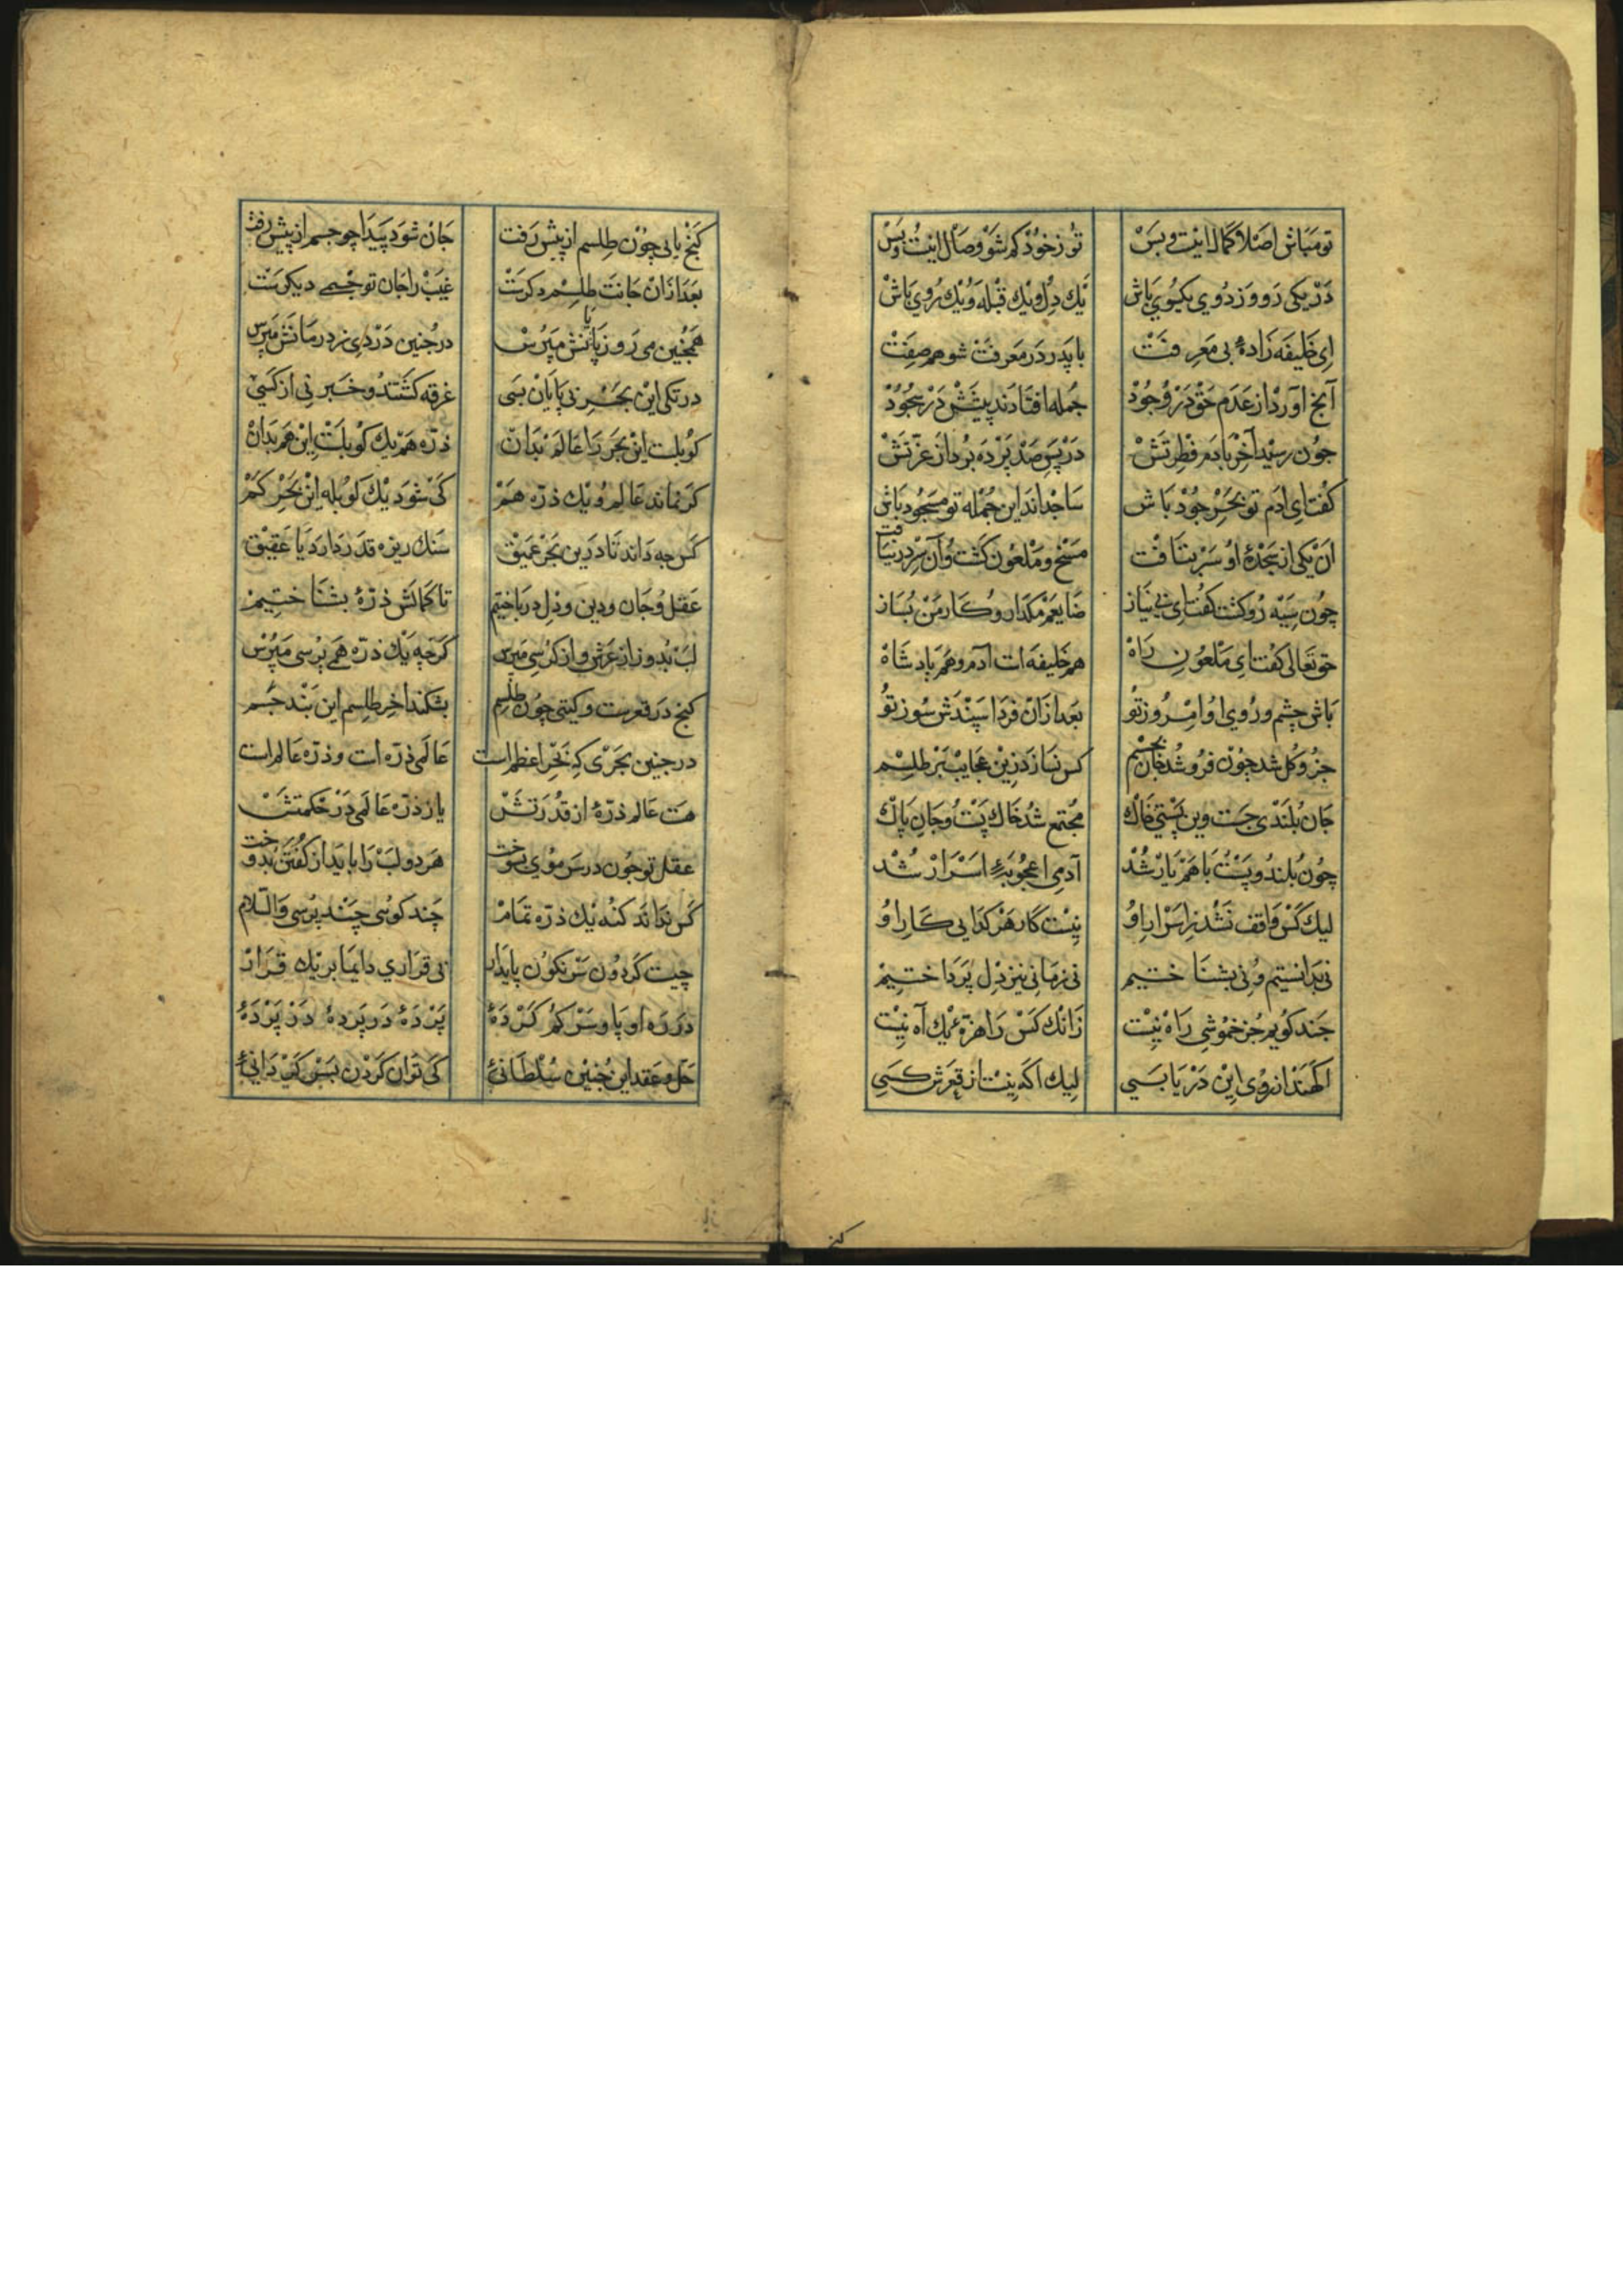 تو مباش اصلا کمال اینست و بس تو ز خود کم شو وصال اینست و بس
در یکی رو وز دوی یکسوی باش یک دل و یک قبله و یک روی باش
ای خلیفه زادهٔ بی معرفت با پدر در معرفت شو هم صفت
آنچ آورد از عدم حق در وجود جمله افتادند پیشش در سجود
جون رسید آخر بآدم فطرتش در پس صد پرده برد از عزتش
کفت ای ادم تو بحر جود باش ساجداند این جمله تو مسجود باش
ان یکی از سجدهٔ او سر بتافت مسخ و ملعون کشت و آن سر در نیافت
چون سیه رو کشت کفت ای بی نیاز ضایعم مکذار و کار من بساز
حق تعالی کفت ای ملعون راه هم خلیفه است آدم و هم پادشاه
باش چشم و روی او امروز تو بعد ازان فردا سپندش سوز تو
جز و کل شد چون فرو شد جان بجسم کس نسازد زین عجایب تر طلسم
جان بلندی جست وین پستی خاک مجتمع شد خاک پست و جان پاک
چون بلند و پست با هم یار شد آدمی اعجوبهٔ اسرار شد
لیک کس واقف نشد ز اسرار او نیست کار هر کدایی کار او
نی بدانستیم و نی بشناختیم نی زمانی نیز دل پرداختیم
جند کویم جز خموشی راه نیست زانک کس را زهرهٔ یک آه نیست
اکهند از روی این دریا بسی لیک اکه نیست از قعرش کسی
کنج یابی چون طلسم از پیش رفت جان شود پیدا چو جسم از پیش رفت
بعد ازان جانت طلسم دکرست غیب را جان تو جسمی دیکرست
همجنین می رو ز پایانش مپرس در جنین دردی ز درمانش مپرس
در تکی این بحر بی پایان بسی غرقه کشتند و خبر نی از کسی
کوبلست این بحر را عالم بدان ذره هم یک کوبلست این هم بدان
کر نماند عالم و یک ذره هم کی شود یک کوبله این بحر کم
کس جه داند تا درین بحر عمیق سنک ریزه قدر دارد یا عقیق
عقل و جان و دین و دل درباختیم تا کمالش ذرهٔ بشناختیم
لب بدوز از عرش و از کرسی مپرس کرچه یک ذره همی پرسی مپرس
کنج در قعرست و کیتی چون طلسم بشکند اخر طلسم این بند جسم
در جنین بحری که بحر اعظم است عالمی ذره است و ذره عالم است
هست عالم ذرهٔ از قدرتش باز ذره عالمی در حکمتش
عقل تو جون در سر مویی بسوخت هر دو لب را باید از کفتن بدوخت
کس نداند کنه یک ذره تمام چند کوئی چند پرسی والسلام
چیست کردون سرنکون پایدار بی قراری دایما بر یک قرار
در ره او پا و سر کم کردهٔ پردهٔ در پردهٔ در پردهٔ
حل و عقد این جنین سلطانیٔ کی توان کردن بسر کردانیٔ